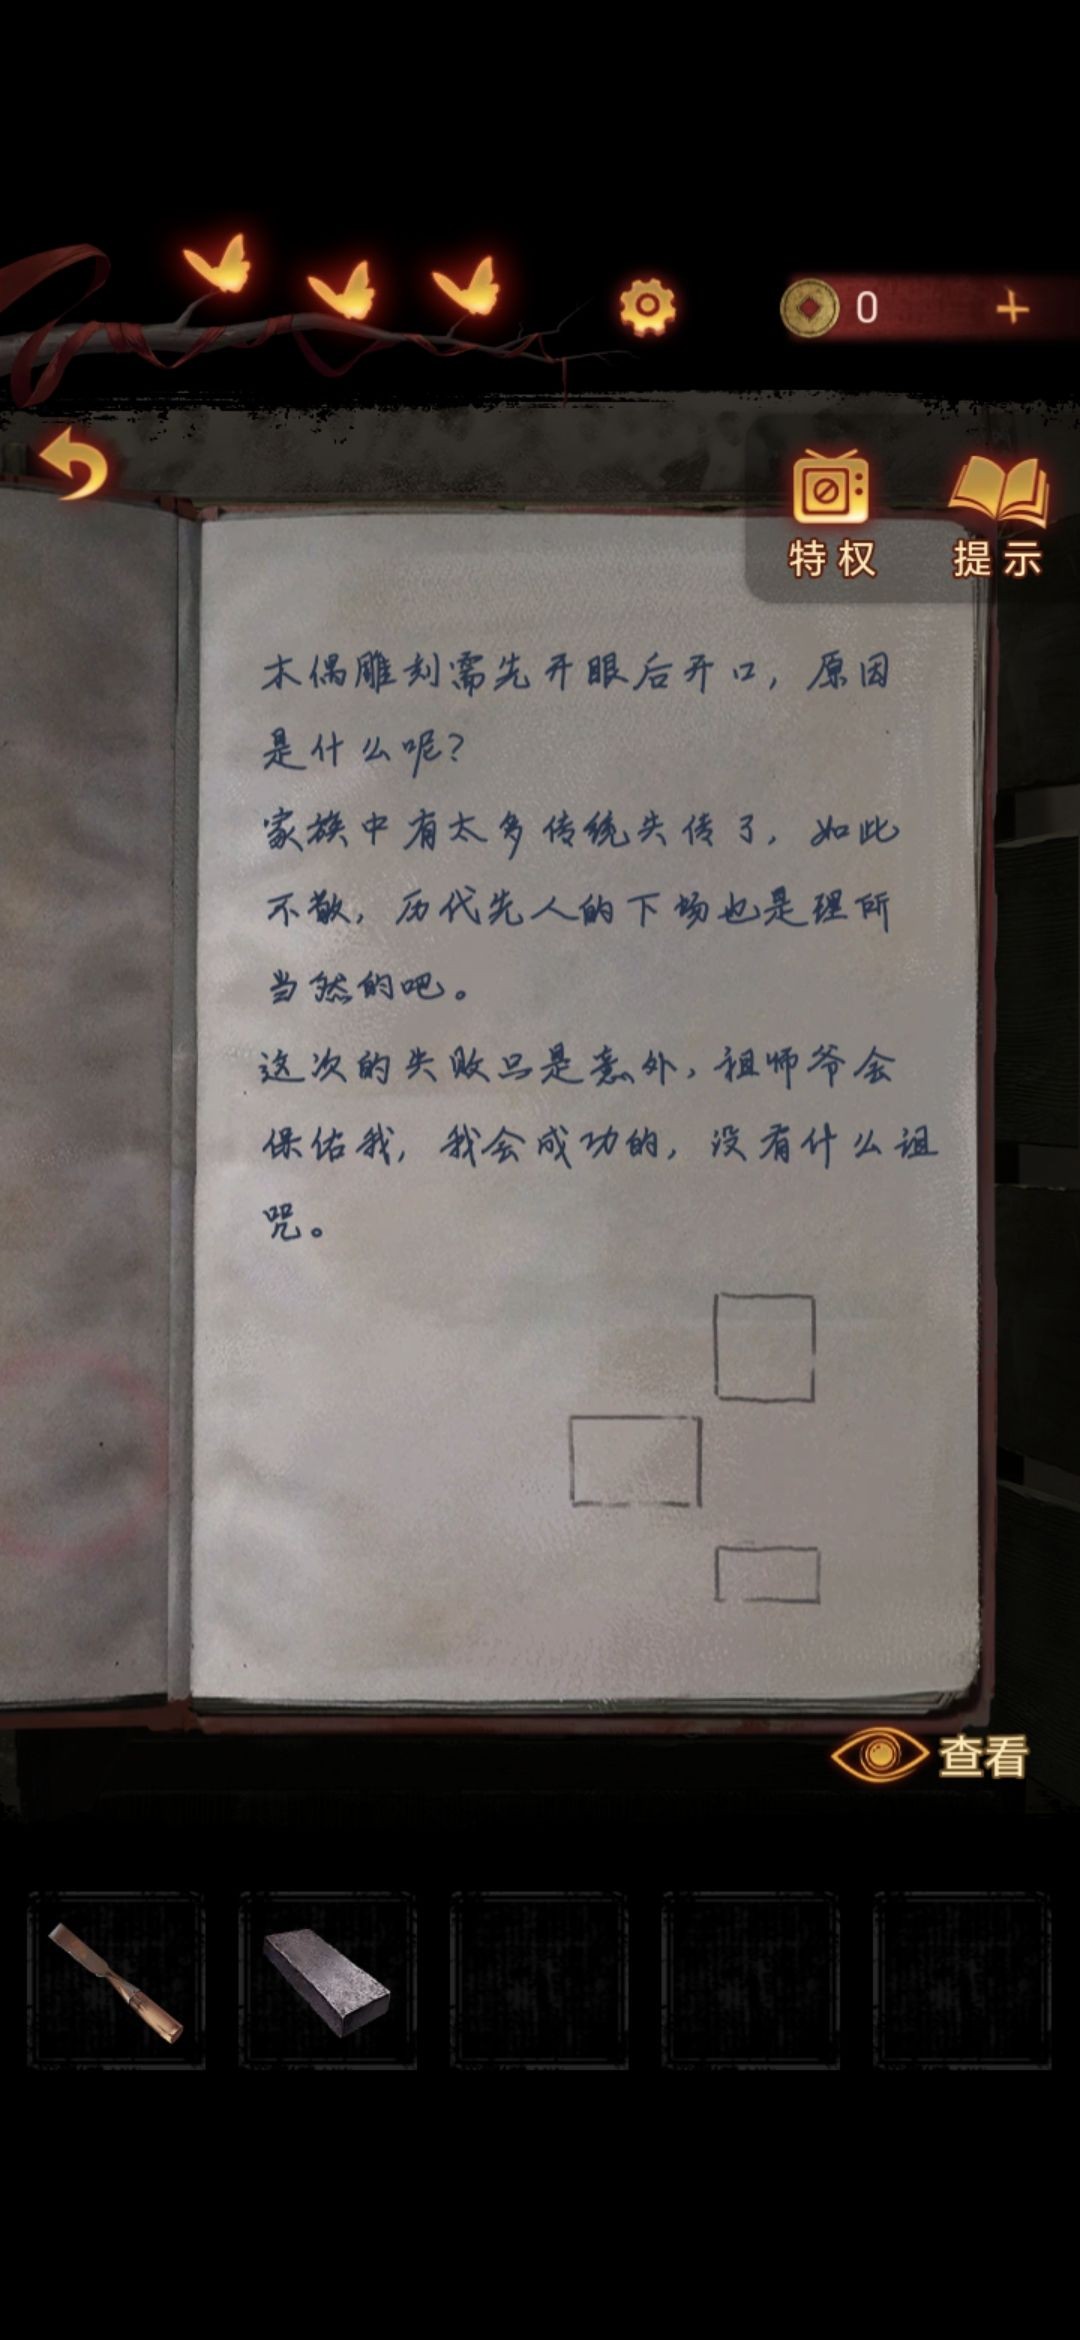 0
特权
提示
木偶雕刻需先开眼后开口，原因
是什么呢？
家族中有太多传统失传了，如此
不敬，历代先人的下场也是理所
当然的吧。
这次的失败只是意外，祖师爷会
保佑我，我会成功的，没有什么诅
咒。
查看